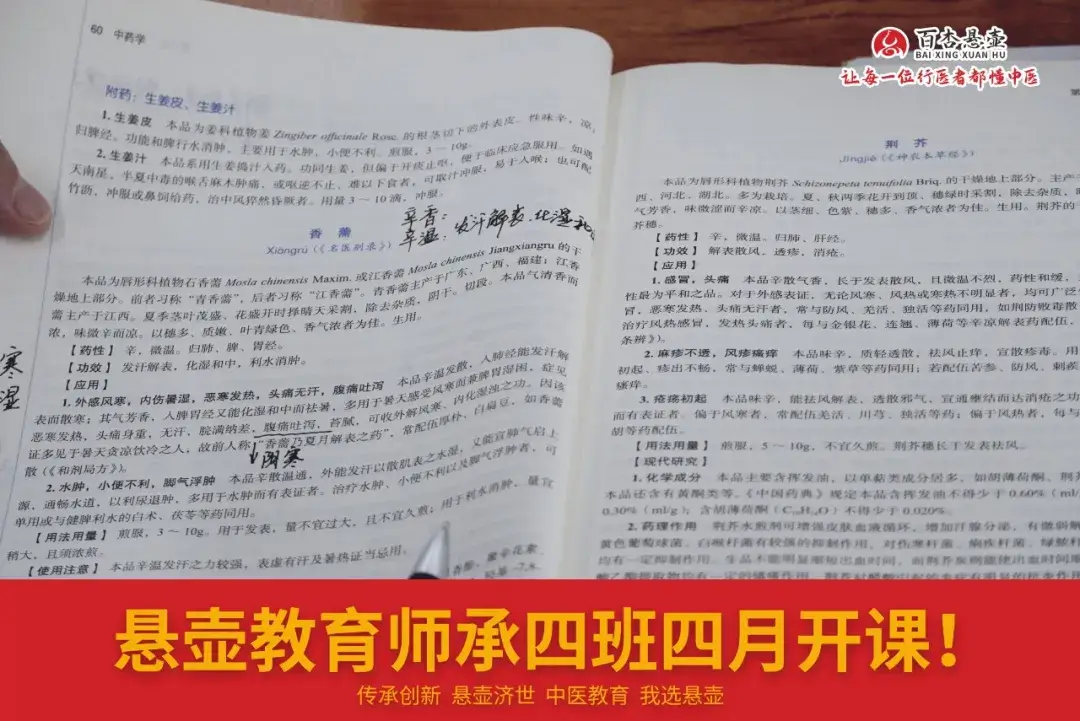 60 中药学
百杏悬壶
BAI XING XUAN HU
让每一位行医者都懂中医
附药：生姜皮、生姜汁
1. 生姜皮 本品为姜科植物姜 Zingiber officinale Rosc. 的根茎切下的外表皮。性味辛，凉；
归脾经。功能和脾行水消肿，主要用于水肿，小便不利。煎服，3～10g。
2. 生姜汁 本品系用生姜捣汁入药。功同生姜，但偏于开痰止呕，便于临床应急服用。如遇
天南星、半夏中毒的喉舌麻木肿痛，或呕逆不止、难以下食者，可取汁冲服，易于入喉；也可配
竹沥，冲服或鼻饲给药，治中风猝然昏厥者。用量 3～10 滴，冲服。
辛香：
辛温：发汗解表、化湿和
香薷
Xiāngrú（《名医别录》）
本品为唇形科植物石香薷 Mosla chinensis Maxim. 或江香薷 Mosla chinensis Jiangxiangru 的干
燥地上部分。前者习称“青香薷”，后者习称“江香薷”。青香薷主产于广东、广西、福建；江香
薷主产于江西。夏季茎叶茂盛、花盛开时择晴天采割，除去杂质，阴干。切段。本品气清香而
浓，味微辛而凉。以穗多、质嫩、叶青绿色、香气浓者为佳。生用。
【药性】 辛，微温。归肺、脾、胃经。
【功效】 发汗解表，化湿和中，利水消肿。
【应用】
寒
湿
1. 外感风寒，内伤暑湿，恶寒发热，头痛无汗，腹痛吐泻 本品辛温发散，入肺经能发汗解
表而散寒；其气芳香，入脾胃经又能化湿和中而祛暑，多用于暑天感受风寒而兼脾胃湿困，症见
恶寒发热，头痛身重，无汗，脘满纳差，腹痛吐泻，苔腻，可收外解风寒、内化湿浊之功。因该
证多见于暑天贪凉饮冷之人，故前人称“香薷乃夏月解表之药”，常配伍厚朴、白扁豆，如香薷
散（《和剂局方》）。
阴寒
2. 水肿，小便不利，脚气浮肿 本品辛散温通，外能发汗以散肌表之水湿，又能宣肺气启上
源，通畅水道，以利尿退肿，多用于水肿而有表证者。治疗水肿、小便不利以及脚气浮肿者，可
单用或与健脾利水的白术、茯苓等药同用。
【用法用量】 煎服，3～10g。用于发表，量不宜过大，且不宜久煎；用于利水消肿，量宜
稍大，且须浓煎。
【使用注意】 本品辛温发汗之力较强，表虚有汗及暑热证当忌用。
荆芥
Jīngjiè（《神农本草经》）
本品为唇形科植物荆芥 Schizonepeta tenuifolia Briq. 的干燥地上部分。主产于
西、河北、湖北。多为栽培。夏、秋两季花开到顶、穗绿时采割，除去杂质，
气芳香，味微涩而辛凉。以茎细、色紫、穗多、香气浓者为佳。生用。荆芥的
芥穗。
【药性】 辛，微温。归肺、肝经。
【功效】 解表散风，透疹，消疮。
【应用】
1. 感冒，头痛 本品辛散气香，长于发表散风，且微温不烈，药性和缓，
性最为平和之品。对于外感表证，无论风寒、风热或寒热不明显者，均可广泛
冒，恶寒发热、头痛无汗者，常与防风、羌活、独活等药同用，如荆防败毒散
治疗风热感冒，发热头痛者，每与金银花、连翘、薄荷等辛凉解表药配伍，
条辨》）。
2. 麻疹不透，风疹瘙痒 本品味辛，质轻透散，祛风止痒，宣散疹毒。用
初起、疹出不畅，常与蝉蜕、薄荷、紫草等药同用；若配伍苦参、防风、刺蒺
瘙痒。
3. 疮疡初起 本品味辛，能祛风解表，透散邪气，宣通壅结而达消疮之功
而有表证者。偏于风寒者，常配伍羌活、川芎、独活等药；偏于风热者，每与
胡等药配伍。
【用法用量】 煎服，5～10g，不宜久煎。荆芥穗长于发表祛风。
【现代研究】
1. 化学成分 本品主要含挥发油，以单萜类成分居多，如胡薄荷酮、荆芥
本品还含有黄酮类等。《中国药典》规定本品含挥发油不得少于 0.60%（ml/g）
0.30%（ml/g）；含胡薄荷酮（C₁₀H₁₆O）不得少于 0.020%。
2. 药理作用 荆芥水煎剂可增强皮肤血液循环，增加汗腺分泌，有微弱解
黄色葡萄球菌、白喉杆菌有较强的抑制作用，对伤寒杆菌、痢疾杆菌、绿脓杆
均有一定抑制作用。生品不能明显缩短出血时间，而荆芥炭则能使出血时间
悬壶教育师承四班四月开课！
传承创新 悬壶济世 中医教育 我选悬壶